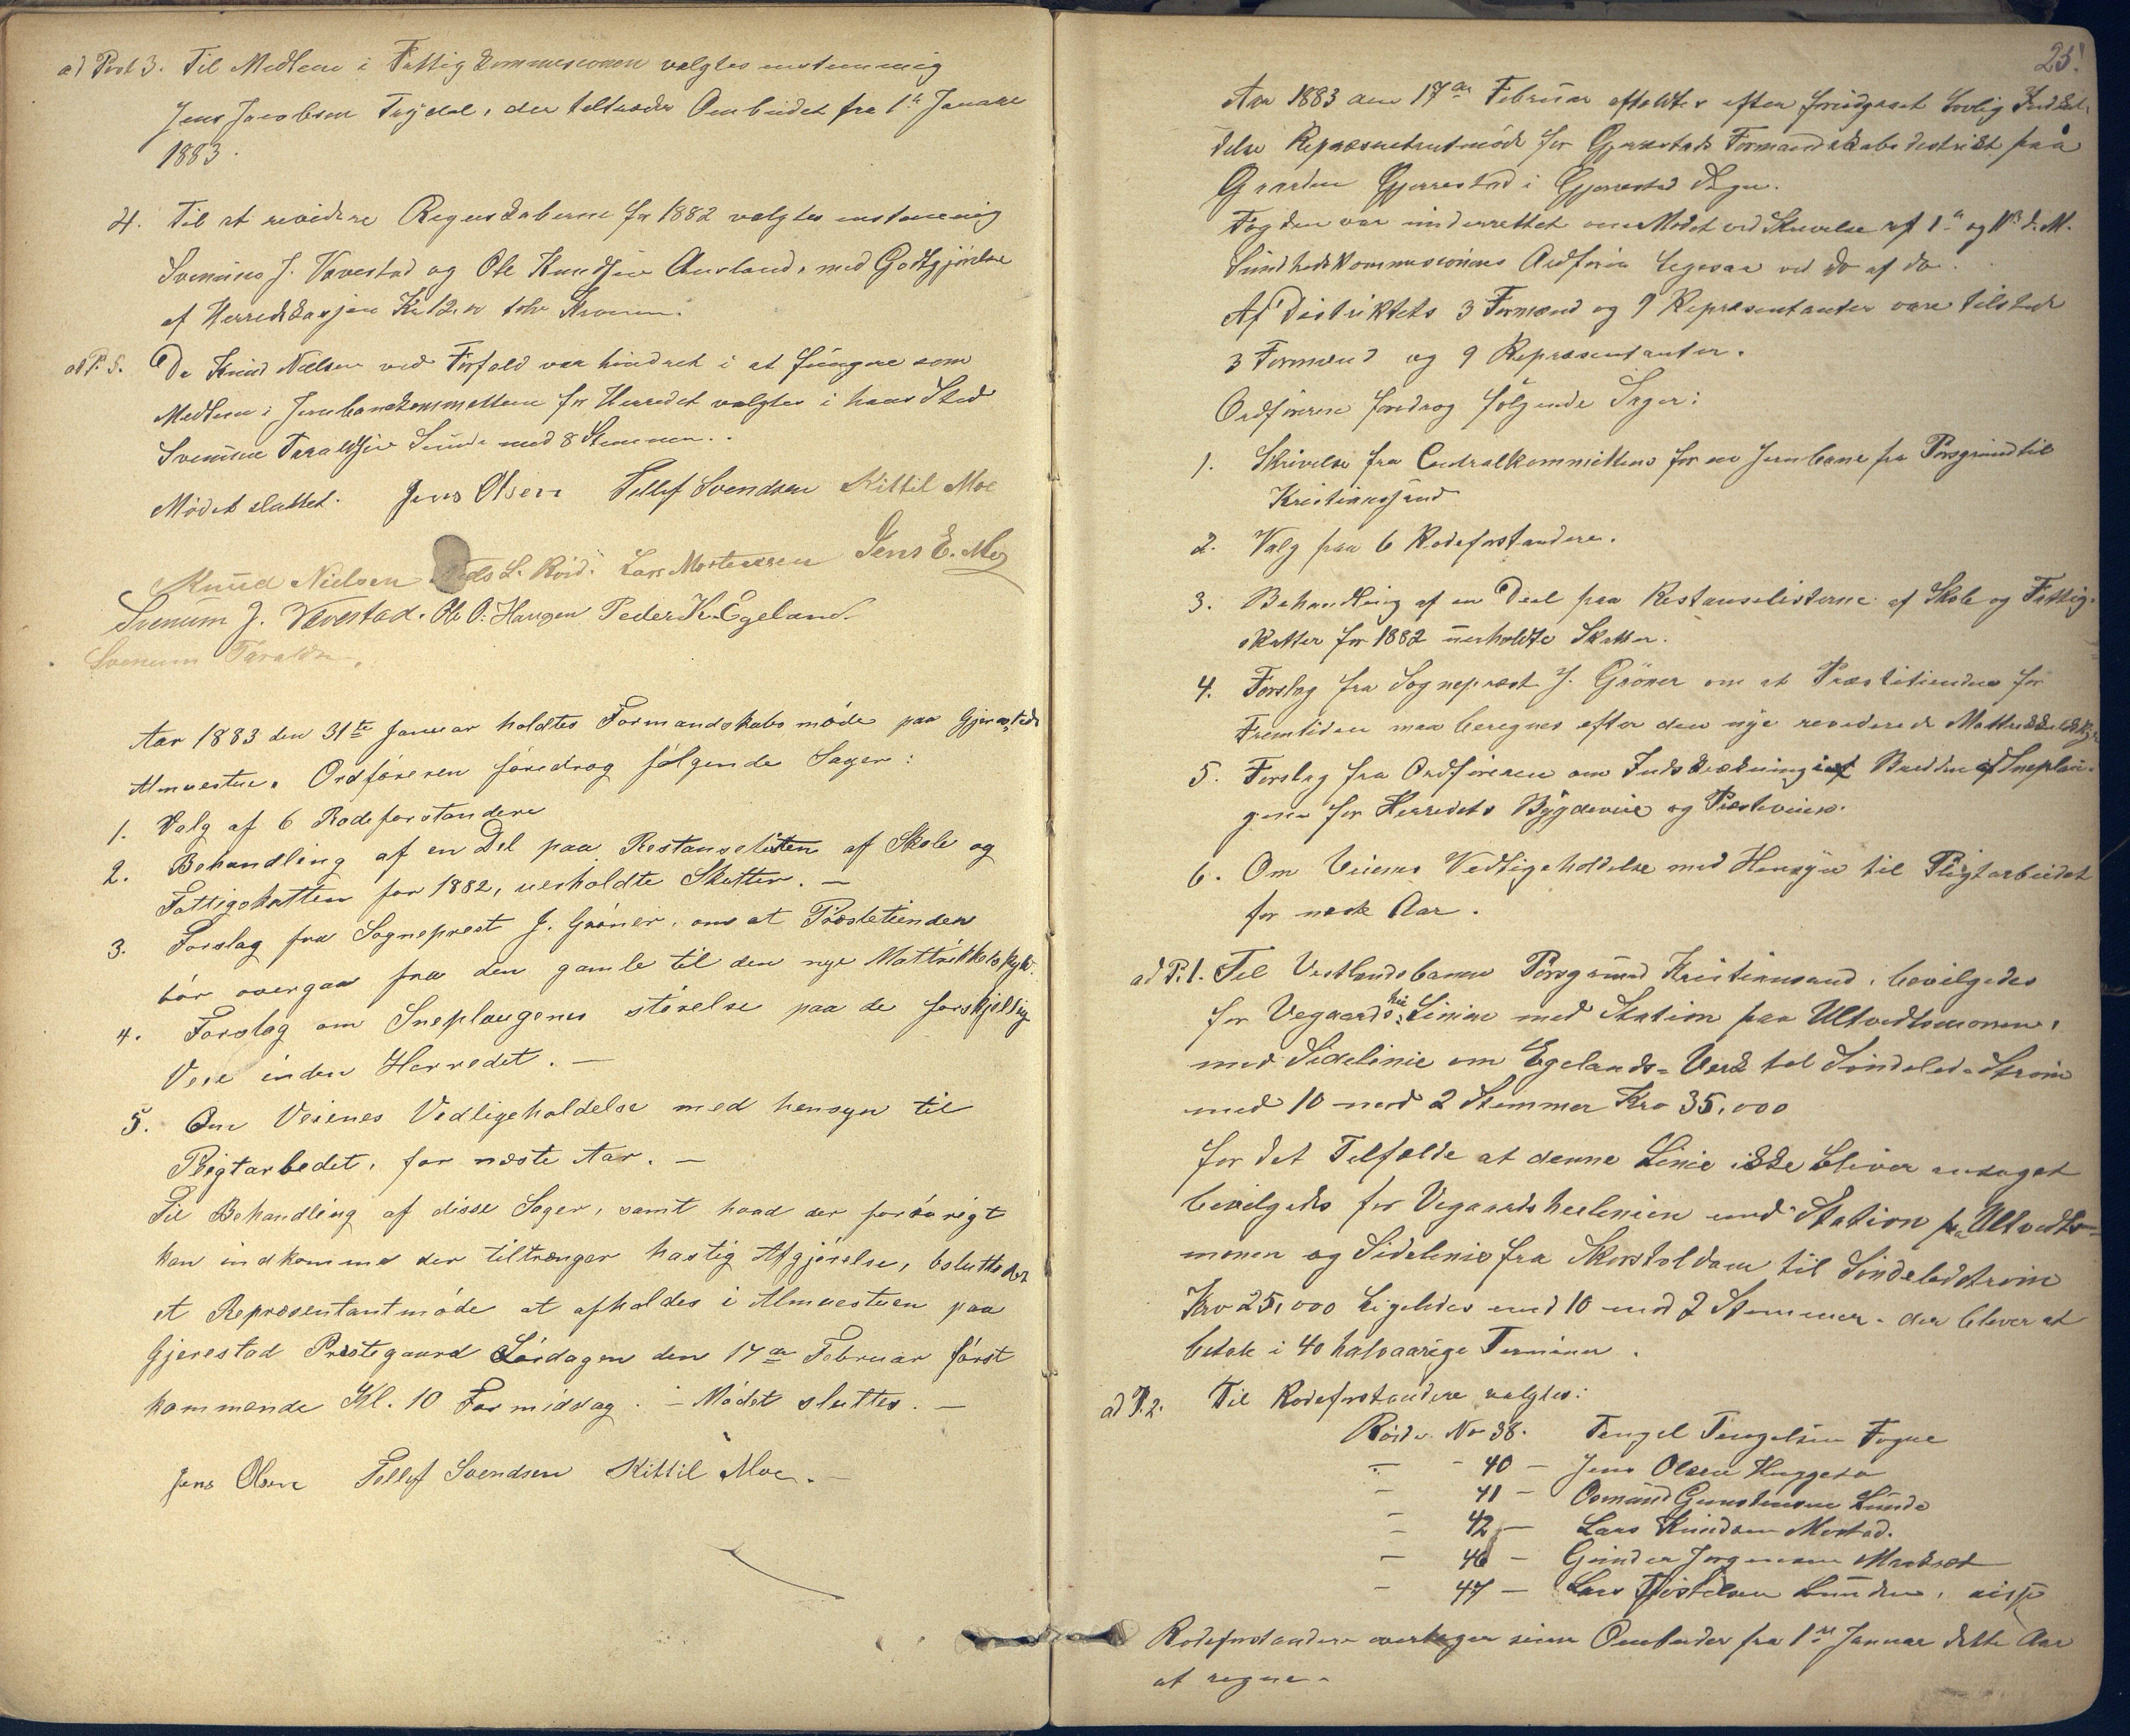 ad Post 3. Til Medlem i Fattigkommissionen valgtes enstemmig
Jens Jacobsen Trydal, der tiltræder Ombudet fra 1ste Januar
1883.
4. Til at revidere Regnskaberne for 1882 valgtes enstemmig
Svenum J. Vævestad og Ole Knudsen Ausland, med Godtgjørelse
af Herredskassen Kr 12.00 tolv Kroner.
ad P. 5. Da Knud Nielsen ved Forfald var hindret i at fungere som
Medlem i Jernbanekommitteen for Herredet valgtes i hans Sted
Svenum Taraldsen Sunde med 8 Stemmer.
Mødet sluttet. Jens Olsen Tellef Svendsen Kittil Moe
Knud Nielsen Niels L. Røid. Lars Mortensen Jens E. Moe
Svenum J. Vævestad. Ole O. Haugen Peder K. Egeland.
Svenum Taralds
Aar 1883 den 31te Januar holdtes Formandskabsmøde paa Gjerestads
Almuestue. Ordføreren foredrog følgende Sager:
1. Valg af 6 Rodeforstandere
2. Behandling af en Del paa Restanselisten af Skole og
Fattigskatten for 1882, uerholdte Skatter. —
3. Forslag fra Sogneprest J. Grøner, om at Præstetienden
bør overgaa fra den gamle til den nye Mattrikkelskyld.
4. Forslag om Sneplougenes størelse paa de forskjellig
Veie inden Herredet. —
5. Om Veienes Vedligeholdelse med hensyn til
Pligtarbedet, for næste Aar. —
Til Behandling af disse Sager, samt hvad der forøvrigt
kan indkomme der tiltrænger hastig Afgjørelse, besluttedes
et Repræsentantmøde at afholdes i Almuestuen paa
Gjerestad Præstegaard Lørdagen den 17de Februar først
kommende Kl. 10 Formiddag. — Mødet sluttes. —
Jens Olsen Tellef Svendsen Kittil Moe. —
25.
Aar 1883 den 17de Februar afholdtes efter foreudgaaet lovlig Indkal-
delse Repræsentantmøde for Gjerestads Formandskabsdistrikt paa
Gaarden Gjerrestad i Gjerrestad Sogn.
Fogden var underrettet om Mødet ved Skrivelse af 1ste og d. M.
Sundhedskommisionens Ordfører ligesaa ved do af do.
Af Distriktets 3 Formænd og 9 Repræsentanter vare tilstede
3 Formænd og 9 Repræsentanter.
Ordføreren foredrog følgende Sager:
1. Skrivelse fra Centralkommitteens for en Jernbane fra Porsgrund til
Kristianssand
2. Valg paa 6 Rodeforstandere.
3. Behandling af en Deel paa Restanselisterne af Skole og Fattig-
skatter for 1882 uerholdte Skatter.
4. Forslag fra Sogneprest J. Grøner om at Præstetienden for
Fremtiden maa beregnes efter den nye reviderede Mattrikkelskyld
5. Forslag fra Ordføreren om Indskrækning i Bredden af Sneplou-
gene for Herredets Bygdeveie og Præsteveien.
6. Om Veienes Vedligeholdelse med Hensyn til Pligtarbeidet
for næste Aar.
ad P. 1. Til Vestlandsbanen Porsgrund Kristiansand, bevilgedes
for VegaardsheiLinien med Station paa Ultvedtsmonen,
med Sidelinie om Egelands-Verk til Søndeled-Strøm
med 10 mod 2 Stemmer Kro 35,000
for det Tilfælde at denne Linie ikke bliver antaget
bevilgedes for Vegaardsheilinien med Station paa Ultvedts-
monen og Sidelinie fra Skorstoldam til Søndeledstrøm
Kro 25,000 ligeledes med 10 mod 2 Stemmer. der bliver at
betale i 40 halvaarige Terminer.
ad P. 2. Til Rodeforstandere valgtes:
Rode No 38. Tengel Tengelsen Fogne
— - 40 — Jens Olsen Huggeto
— 41 — Osmund Gunstensen Lunde
— 42 — Lars Knudsen Mostad.
— 46 — Gunder Jørgensen
— 47 — Lars Lunden, disse
Rodeforstandere overtager sine Ombuder fra 1ste Januar dette Aar
at regne.